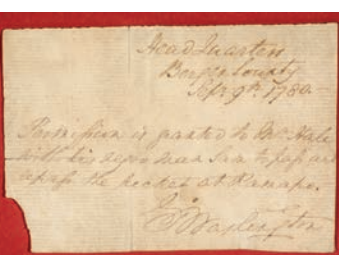 Head Quarters
Bergen County
Sepr. 9th. 1780
Permission is granted to Mr. Hale
with his negro man Sam to pass and
repass the picket at Ramapo.
Go. Washington